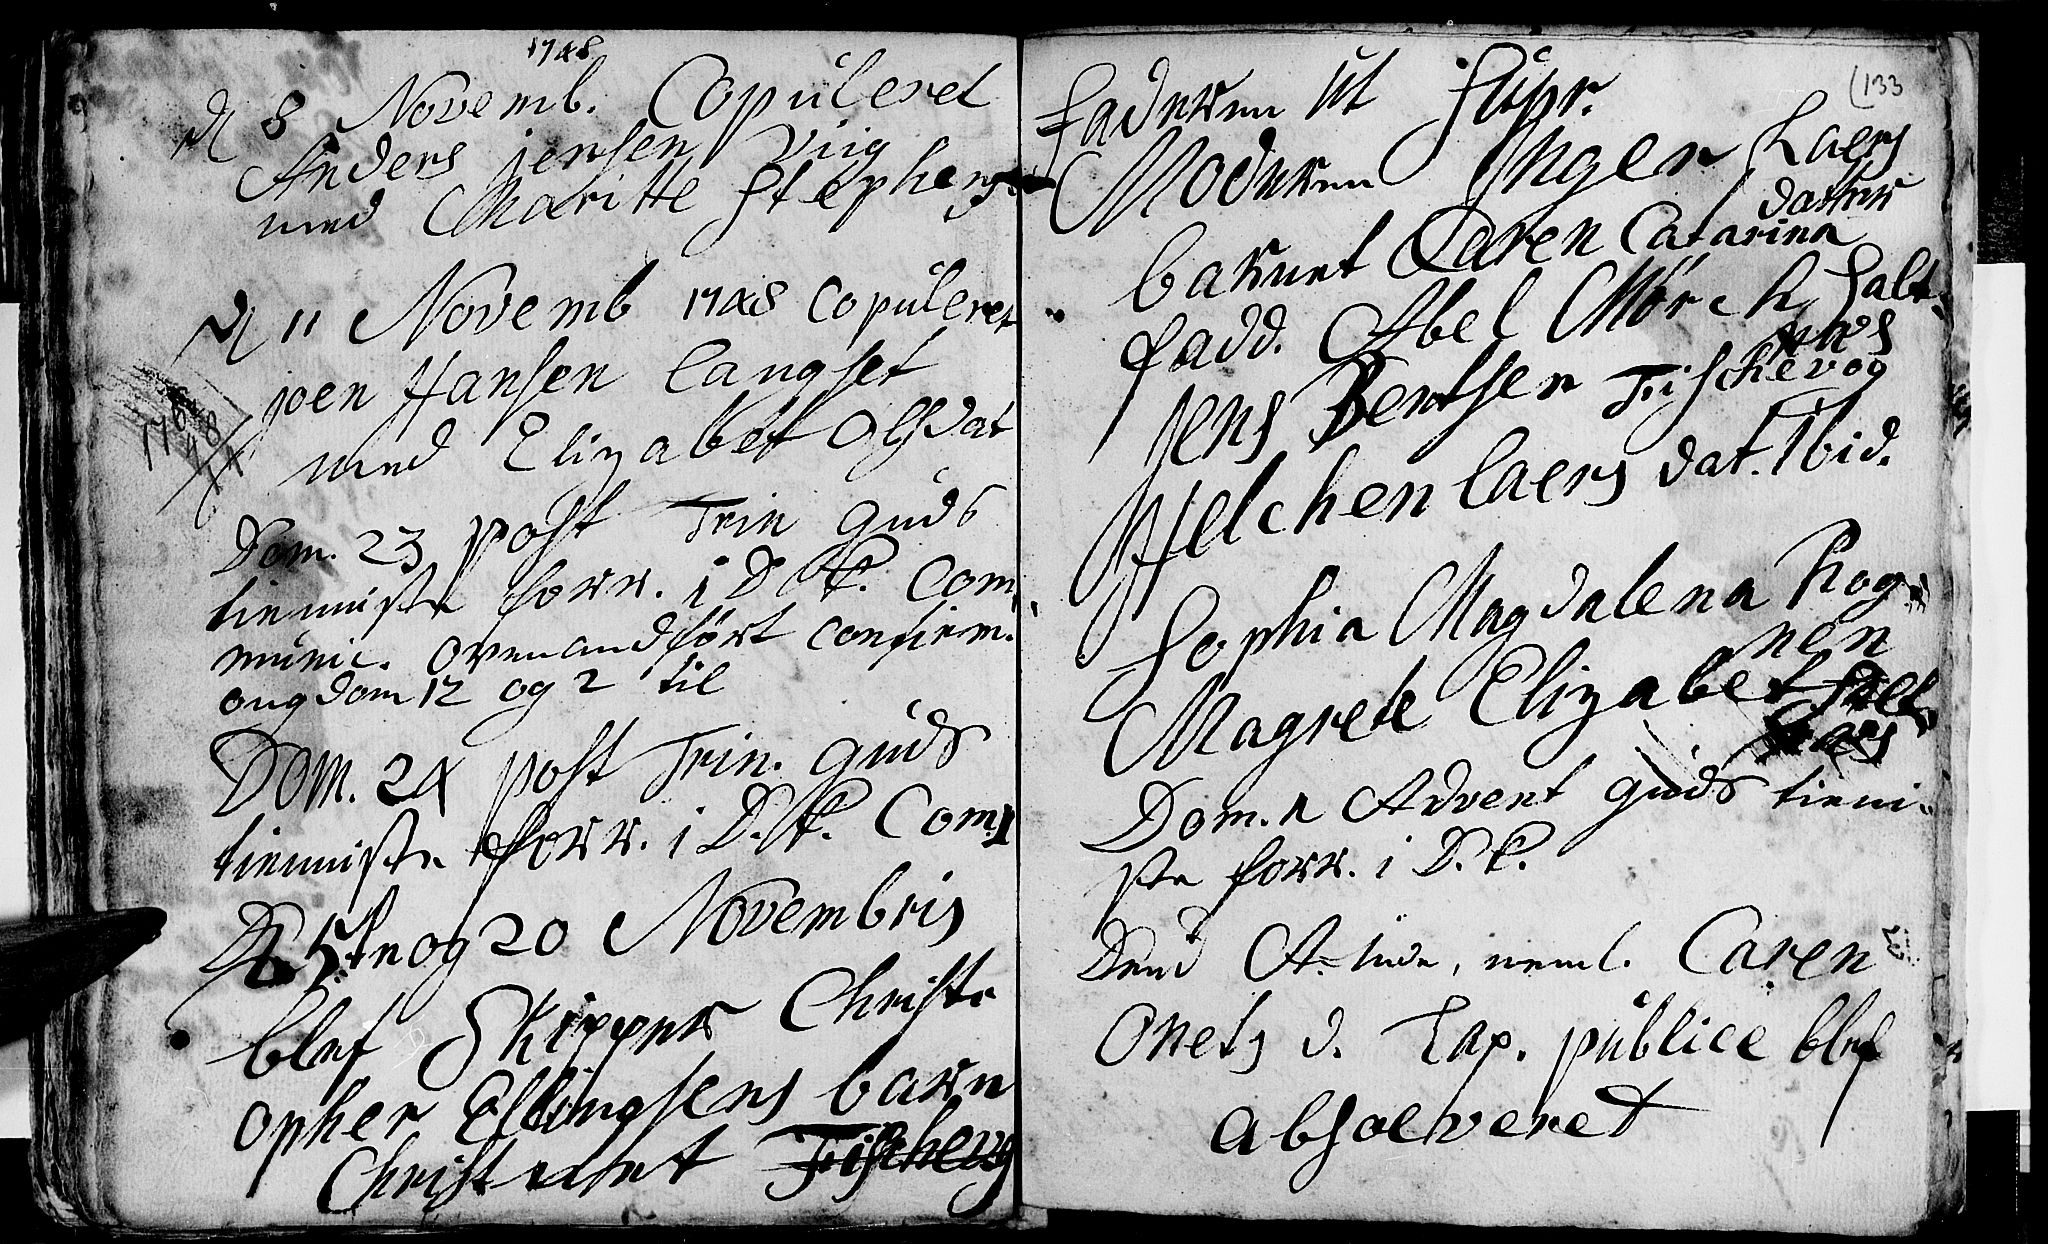 1748
D 8 Novemb. Copùleret
Anders jensen Viig
med Maritte Stephens
D 11 Novemb 1748 Copùleret
joen Hansen Langset
med Elizabet Olsdat
1748
Dom. 23 post Trin Gùds
tienniste forr. i D.K. Com
mùnic. ovenandført confirm.
ongdom 12 og 2 til
Dom. 24 post Trin. Gùds
tienniste forr. i D.K. Com.
og 20 Novembris
blef Skipper Christo
opher Ellingsens barn
Christnet Fischevog
(133
Faderen ut sùpr.
Moderen Inger Laers
datter
barnet Caren Catarina
fadd. Abel Mørch Salt
nes
jens Bentsen Fischevog
Helchen Laers dat. Ibid.
Sophia Magdalena Rog
nen
Magrete Elizabet
Dom. 1 Advent Gùds tieni
ste forr. i D.K.
Dend A. neml. Caren
Onels d. Lap. pùblice blef
absolveret